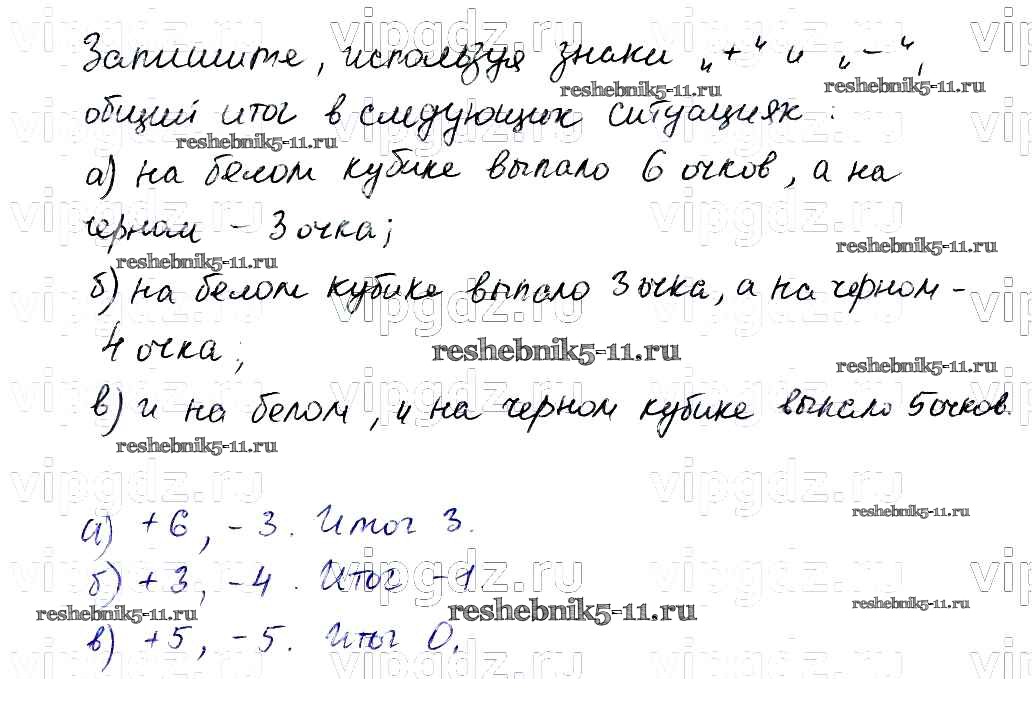 Запишите, используя знаки „+“ и „−“,
общий итог в следующих ситуациях:
а) на белом кубике выпало 6 очков, а на
черном – 3 очка;
б) на белом кубике выпало 3 очка, а на черном –
4 очка;
в) и на белом, и на черном кубике выпало 5 очков.
а) +6, -3. Итог 3.
б) +3, -4. Итог -1.
в) +5, -5. Итог 0.
vipgdz.ru
reshebnik5-11.ru